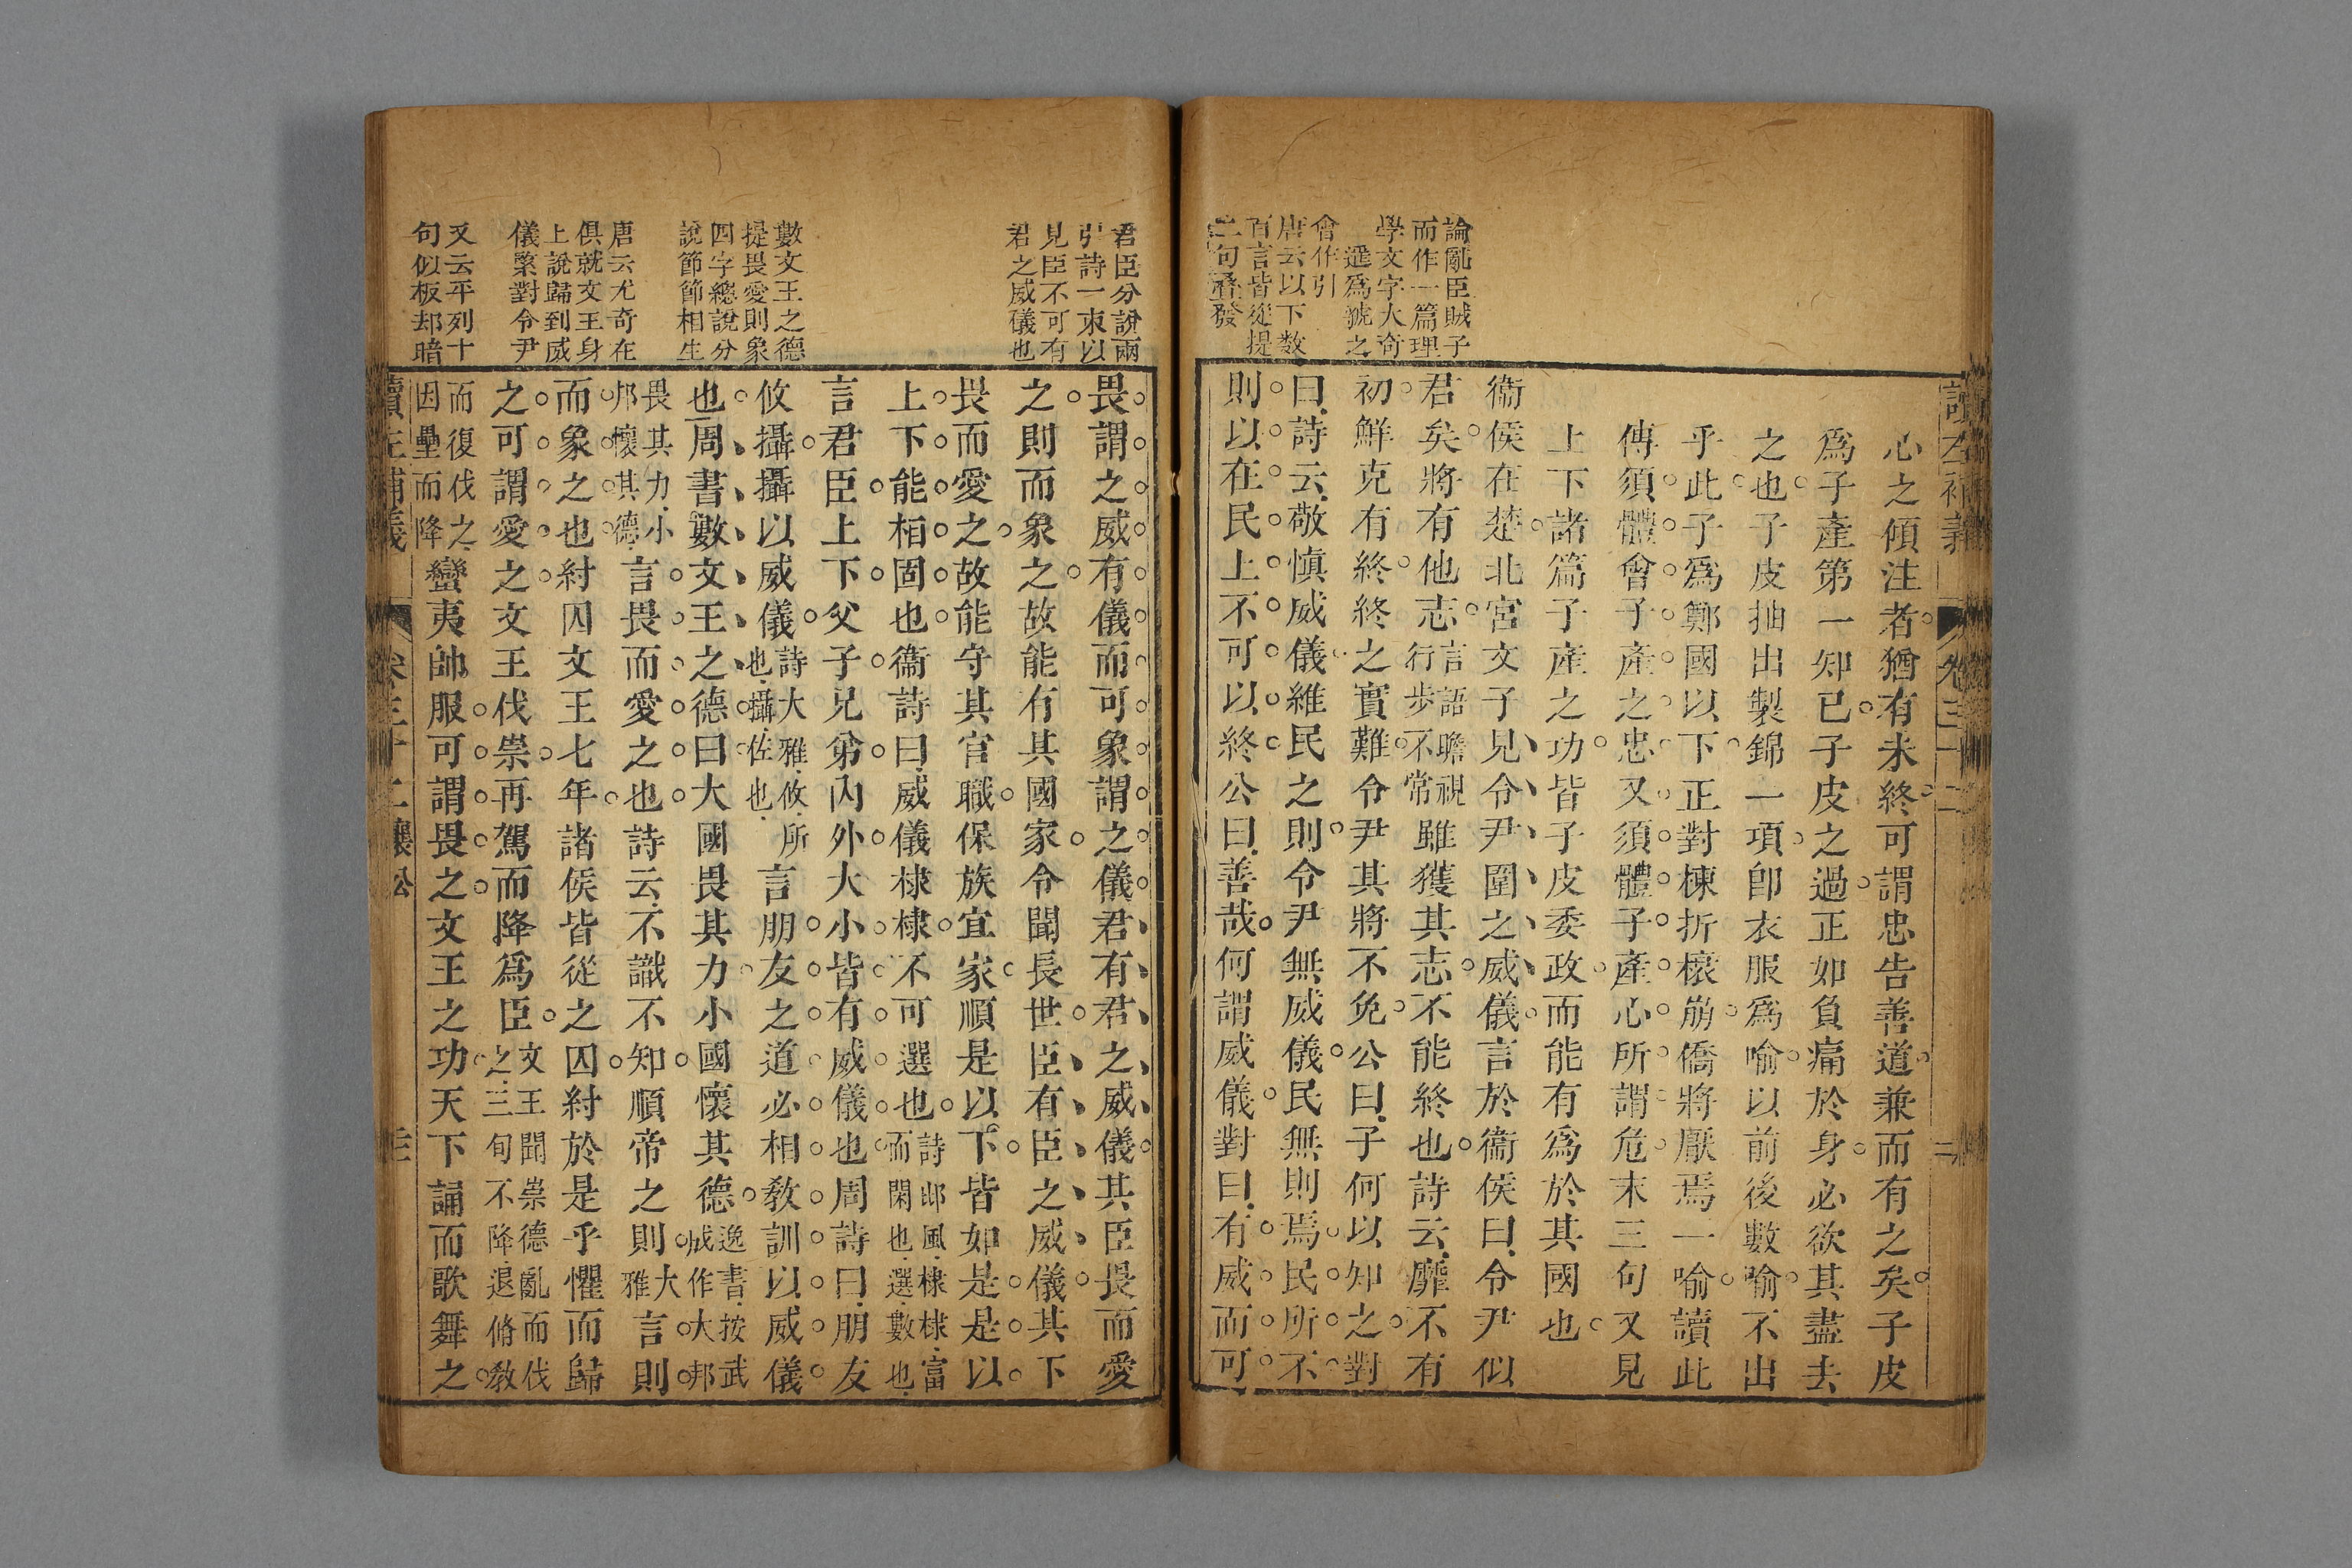 論亂臣賊子
而作一篇理
學文字大奇
遞為號之
會作引
唐云以下数
百言皆從提
二句發
心之傾注者猶有未終可謂忠告善道兼而有之矣子皮
爲子產第一知已子皮之過正如負痛於身必欲其盡去
之也子皮抽出製錦一項卽衣服爲喻以前後數喻不出
乎此子爲鄭國以下正對棟折榱崩僑將厭焉一喻讀此
傳須體會子產之忠又須體子產心所謂危末三句又見
上下諸篇子產之功皆子皮委政而能有爲於其國也
衞侯在楚北宮文子見令尹圍之威儀言於衞侯曰令尹似
君矣將有他志言語瞻視行步不常雖獲其志不能終也詩云靡不有
初鮮克有終終之實難令尹其將不免公曰子何以知之對
曰詩云敬慎威儀維民之則令尹無威儀民無則焉民所不
則以在民上不可以終公曰善哉何謂威儀對曰有威而可
君臣分說兩
引詩一束以
見臣不可有
君之威儀也
數文王之德
提畏愛則象
四字總說分
說節節相生
唐云尤奇在
俱就文王身
上說歸到威
儀緊對令尹
又云平列十
句似板却暗
畏謂之威有儀而可象謂之儀君有君之威儀其臣畏而愛
之則而象之故能有其國家令聞長世臣有臣之威儀其下
畏而愛之故能守其官職保族宜家順是以下皆如是是以
上下能相固也衞詩曰威儀棣棣不可選也詩邶風棣棣富而閑也選數也
言君臣上下父子兄弟內外大小皆有威儀也周詩曰朋友
攸攝攝以威儀詩大雅攸所也攝佐也言朋友之道必相敎訓以威儀
也周書數文王之德曰大國畏其力小國懷其德逸書按武成作大邦
畏其力小邦懷其德言畏而愛之也詩云不識不知順帝之則大雅言則
而象之也紂囚文王七年諸侯皆從之囚紂於是乎懼而歸
之可謂愛之文王伐崇再駕而降爲臣文王聞崇德亂而伐之三旬不降退脩敎
而復伐之因壘而降蠻夷帥服可謂畏之文王之功天下誦而歌舞之
讀左補義 卷三十二 襄公